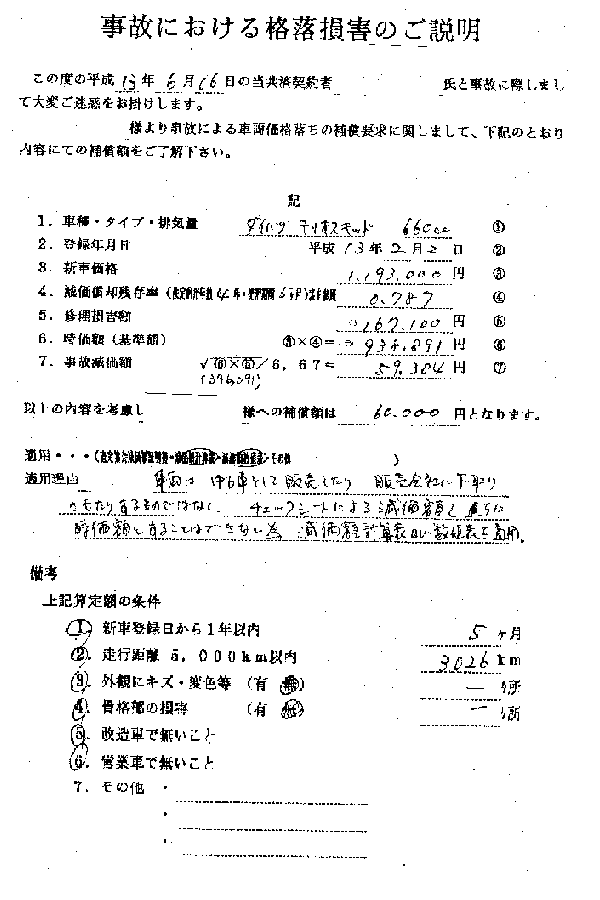 事故における格落損害のご説明
この度の平成 13 年 6 月 16 日の当共済契約者 氏と事故に際しまし
て大変ご迷惑をお掛けします。
様より事故による車両価格落ちの補償要求に関しまして、下記のとおり
内容にての補償額をご了解下さい。
記
1. 車種・タイプ・排気量 ダイハツ テリオスキッド 660cc ①
2. 登録年月日 平成 13 年 2 月 2 日 ②
3. 新車価格 1,193,000 円 ③
4. 減価償却残存率 0.787 ④
5. 修理損害額 167,100 円 ⑤
6. 時価額（基準額） ③×④＝ 938,891 円 ⑥
7. 事故減価額 √(⑤×⑥)／6.67＝ 59,384 円 ⑦
(396,091)
以上の内容を考慮し 様への補償額は 60,000 円となります。
適用・・・( その他 )
適用理由 車両は 中古車として 販売したり 販売会社に下取り
のもたり するものではなく、チェックシートによる 減価額を 直ちに
時価額と することはできない為 減価額計算表 を適用。
備考
上記算定額の条件
① 新車登録日から1年以内 5 ヶ月
②. 走行距離 5,000km以内 3026 km
③. 外観にキズ・変色等 （有 無） ― ヶ所
④. 骨格部の損傷 （有 無） ― ヶ所
⑤. 改造車で無いこと
⑥. 営業車で無いこと
7. その他 ・
・
・